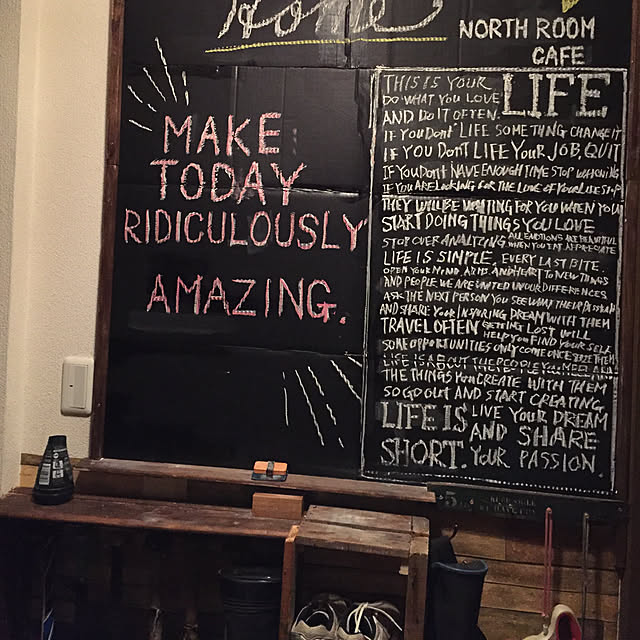 Home
NORTH ROOM
CAFE
MAKE
TODAY
RIDICULOUSLY
AMAZING.
THIS IS YOUR LIFE
DO WHAT YOU LOVE
AND DO IT OFTEN.
IF YOU DON'T LIFE SOMETHING CHANGE IT
IF YOU DON'T LIFE YOUR JOB, QUIT
IF YOU DON'T HAVE ENOUGH TIME STOP
IF YOU ARE LOOKING FOR THE LOVE OF YOUR LIFE STOP
THEY WILL BE WAITING FOR YOU WHEN YOU
START DOING THINGS YOU LOVE
STOP OVER ANALIZING. ALL EMOTIONS ARE BEAUTIFUL
WHEN YOU EAT APPRECIATE
LIFE IS SIMPLE. EVERY LAST BITE.
OPEN YOUR MIND ARMS AND HEART TO NEW THINGS
AND PEOPLE WE ARE UNITED IN OUR DIFFERENCES
ASK THE NEXT PERSON YOU SEE WHAT THEIR PASSION
AND SHARE YOUR INSPIRING DREAM WITH THEM
TRAVEL OFTEN GETTING LOST WILL
HELP YOU FIND YOUR SELF
SOME OPPORTUNITIES ONLY COME ONCE SEIZE THEM
LIFE IS ABOUT THE PEOPLE YOU MEET AND
THE THINGS YOU CREATE WITH THEM
SO GO OUT AND START CREATING
LIFE IS SHORT. LIVE YOUR DREAM
AND SHARE
YOUR PASSION.